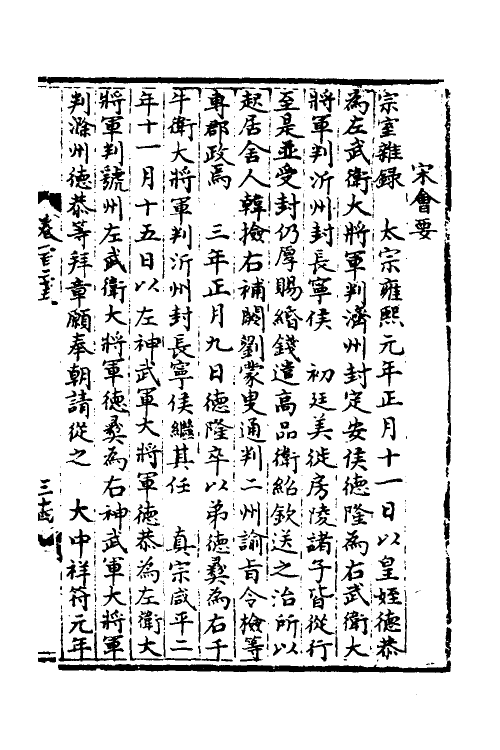 宋會要
宗室雜録　太宗雍熙元年正月十一日以皇姪德恭
為左武衛大將軍判濟州封定安侯德隆為右武衛大
將軍判沂州封長寧侯　初廷美徙房陵諸子皆從行
至是並受封仍厚賜緡錢遣高品衛紹欽送之治所以
起居舍人韓撿右補闕劉蒙叟通判二州諭旨令檢等
專郡政焉　三年正月九日德隆卒以弟德彝為右千
牛衛大將軍判沂州封長寧侯繼其任　真宗咸平二
年十一月十五日以左神武軍大將軍德恭為左衛大
將軍判虢州左武衛大將軍德彝為右神武軍大將軍
判滁州德恭等拜章願奉朝請從之　大中祥符元年